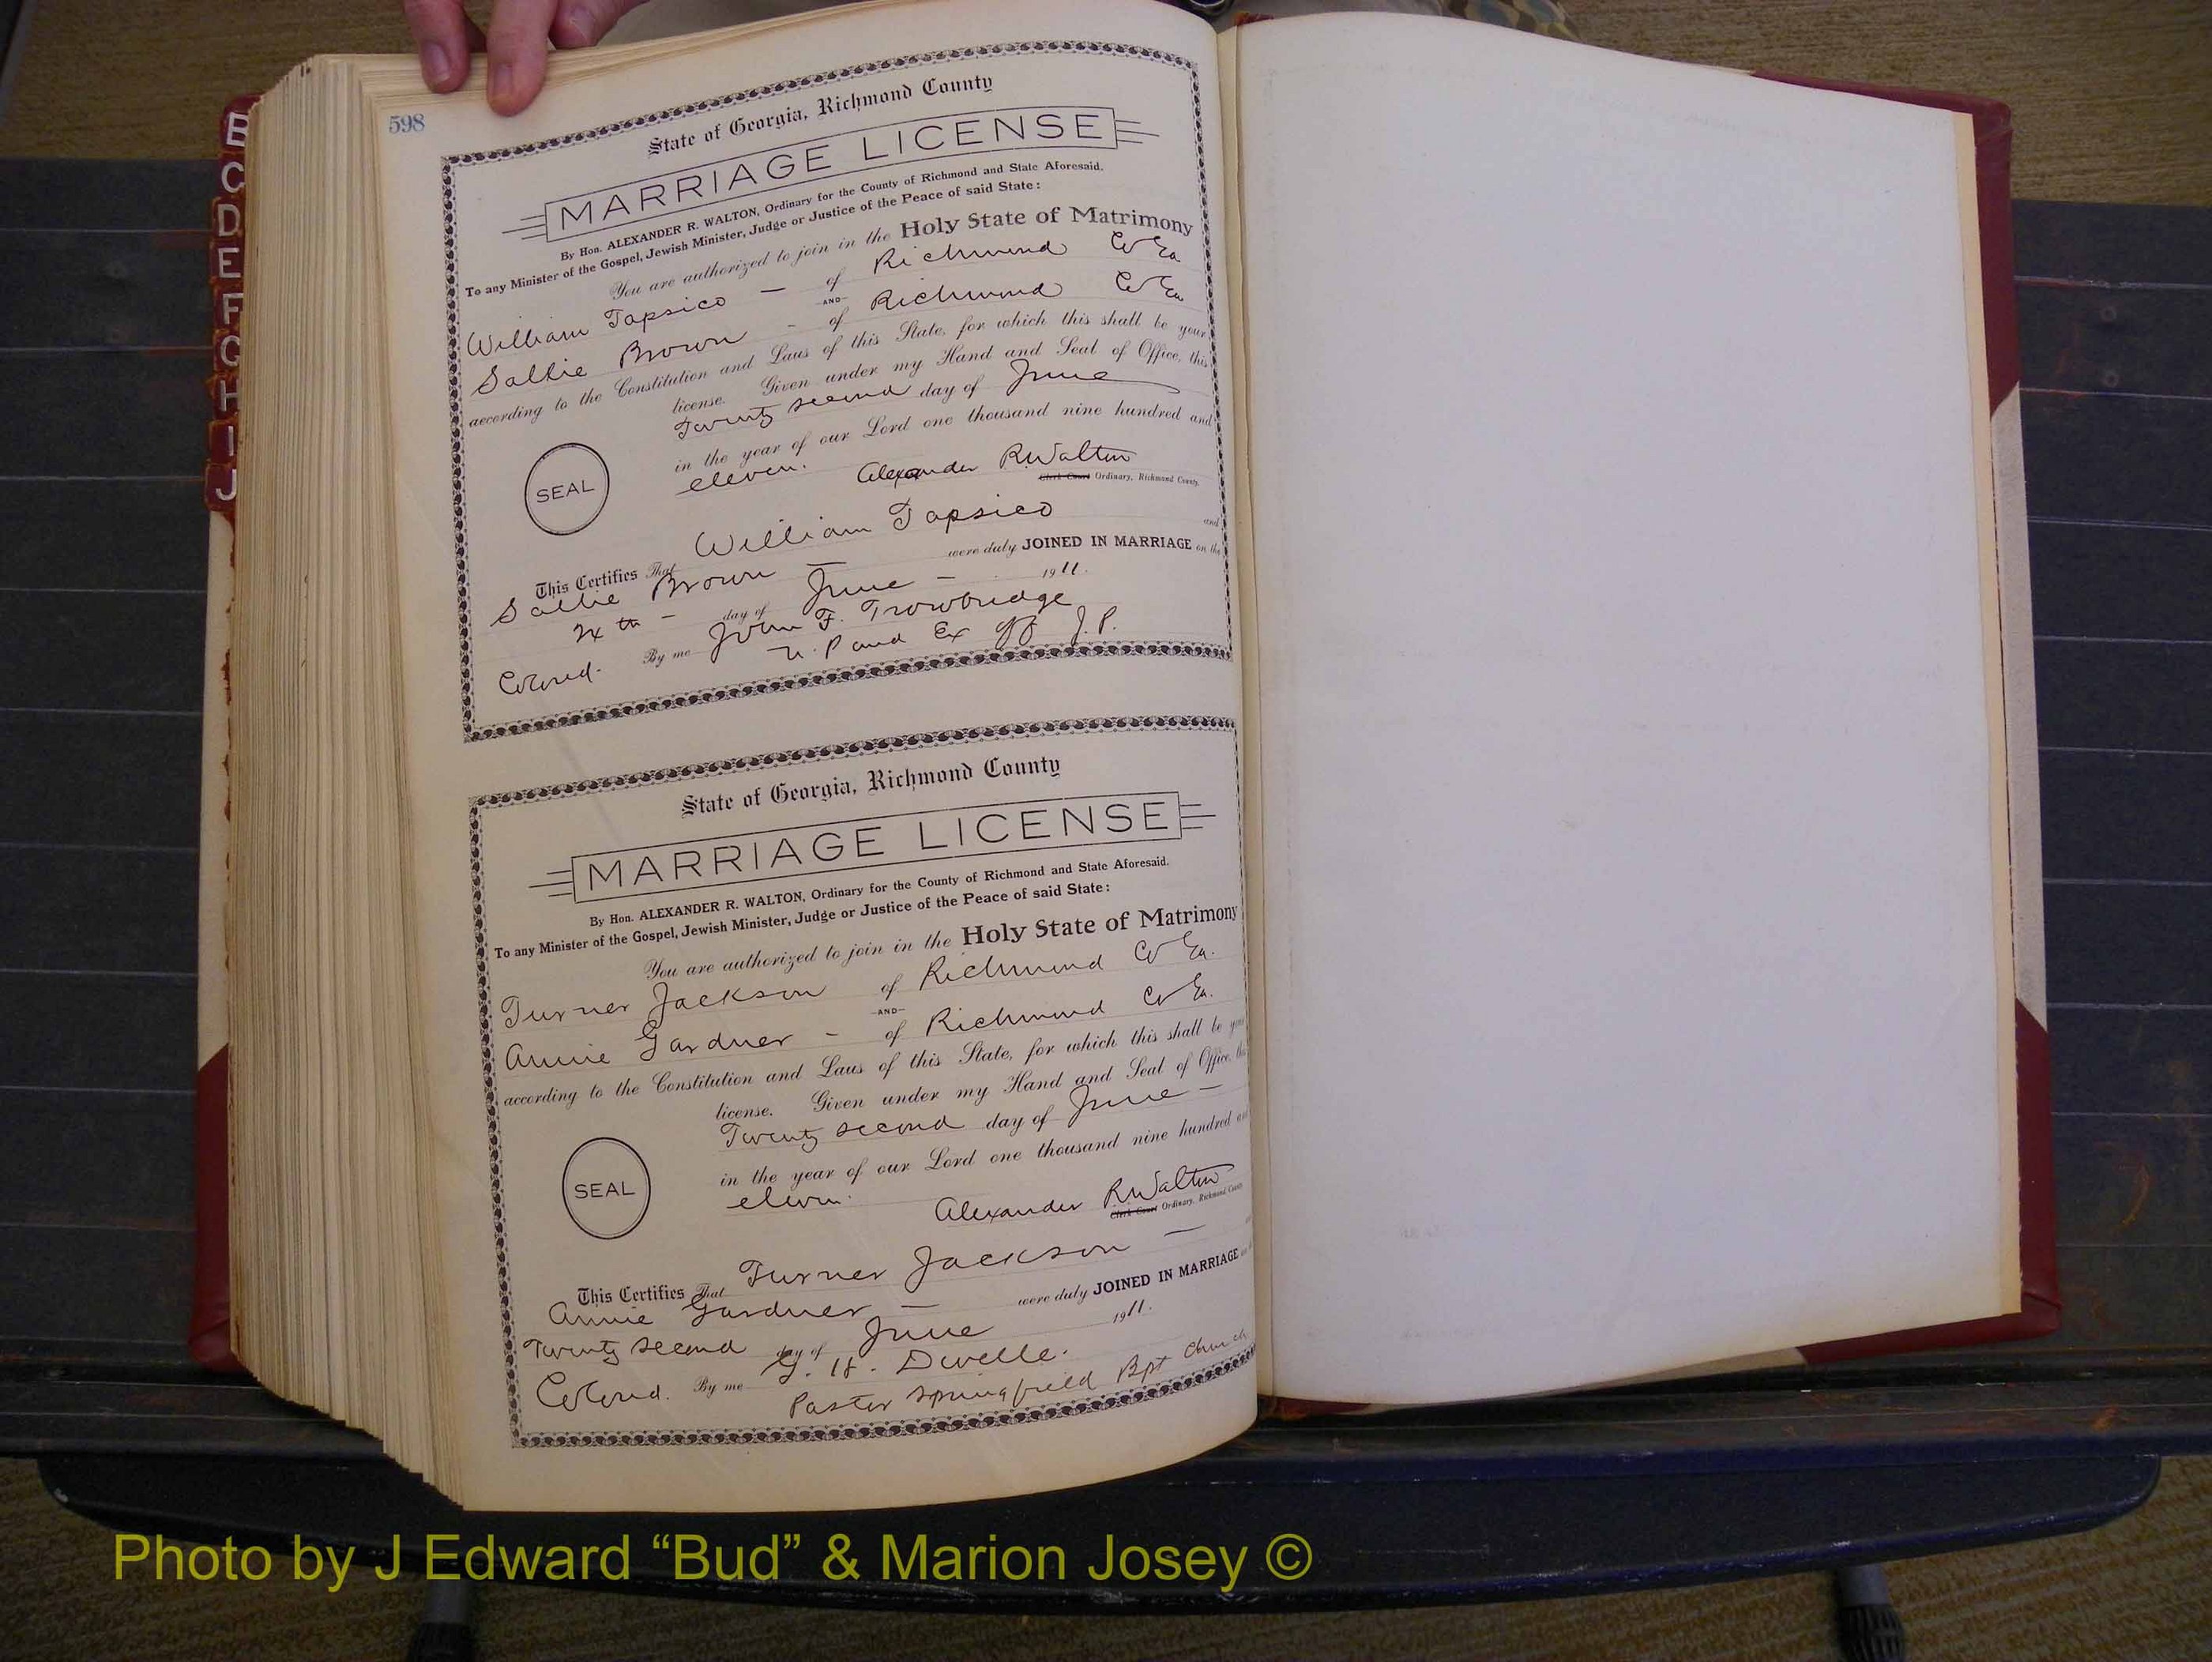 598
B
C
D
E
F
G
H
I
J
State of Georgia, Richmond County
MARRIAGE LICENSE
By Hon. ALEXANDER R. WALTON, Ordinary for the County of Richmond and State Aforesaid.
To any Minister of the Gospel, Jewish Minister, Judge or Justice of the Peace of said State:
You are authorized to join in the Holy State of Matrimony
William Tapsico — of Richmond Co Ga
-AND-
Sallie Brown - of Richmond Co Ga
according to the Constitution and Laws of this State, for which this shall be your
license. Given under my Hand and Seal of Office, this
Twenty second day of June
in the year of our Lord one thousand nine hundred and
eleven. Alexander R. Walton
SEAL
Clerk Court Ordinary, Richmond County.
This Certifies That William Tapsico and
Sallie Brown — were duly JOINED IN MARRIAGE on the
day of June — 1911.
Colored. By me John F. Trowbridge
N. P and Ex off J. P.
State of Georgia, Richmond County
MARRIAGE LICENSE
By Hon. ALEXANDER R. WALTON, Ordinary for the County of Richmond and State Aforesaid.
To any Minister of the Gospel, Jewish Minister, Judge or Justice of the Peace of said State:
You are authorized to join in the Holy State of Matrimony
Turner Jackson of Richmond Co Ga.
-AND-
Annie Gardner - of Richmond Co Ga.
according to the Constitution and Laws of this State, for which this shall be your
license. Given under my Hand and Seal of Office, this
Twenty second day of June —
in the year of our Lord one thousand nine hundred and
eleven. Alexander R. Walton
SEAL
Clerk Court Ordinary, Richmond County
This Certifies That Turner Jackson —
Annie Gardner — were duly JOINED IN MARRIAGE
Twenty second day of June 1911.
Colored. By me G. H. Dwelle.
Pastor Springfield Bpt Church
Photo by J Edward “Bud” & Marion Josey ©